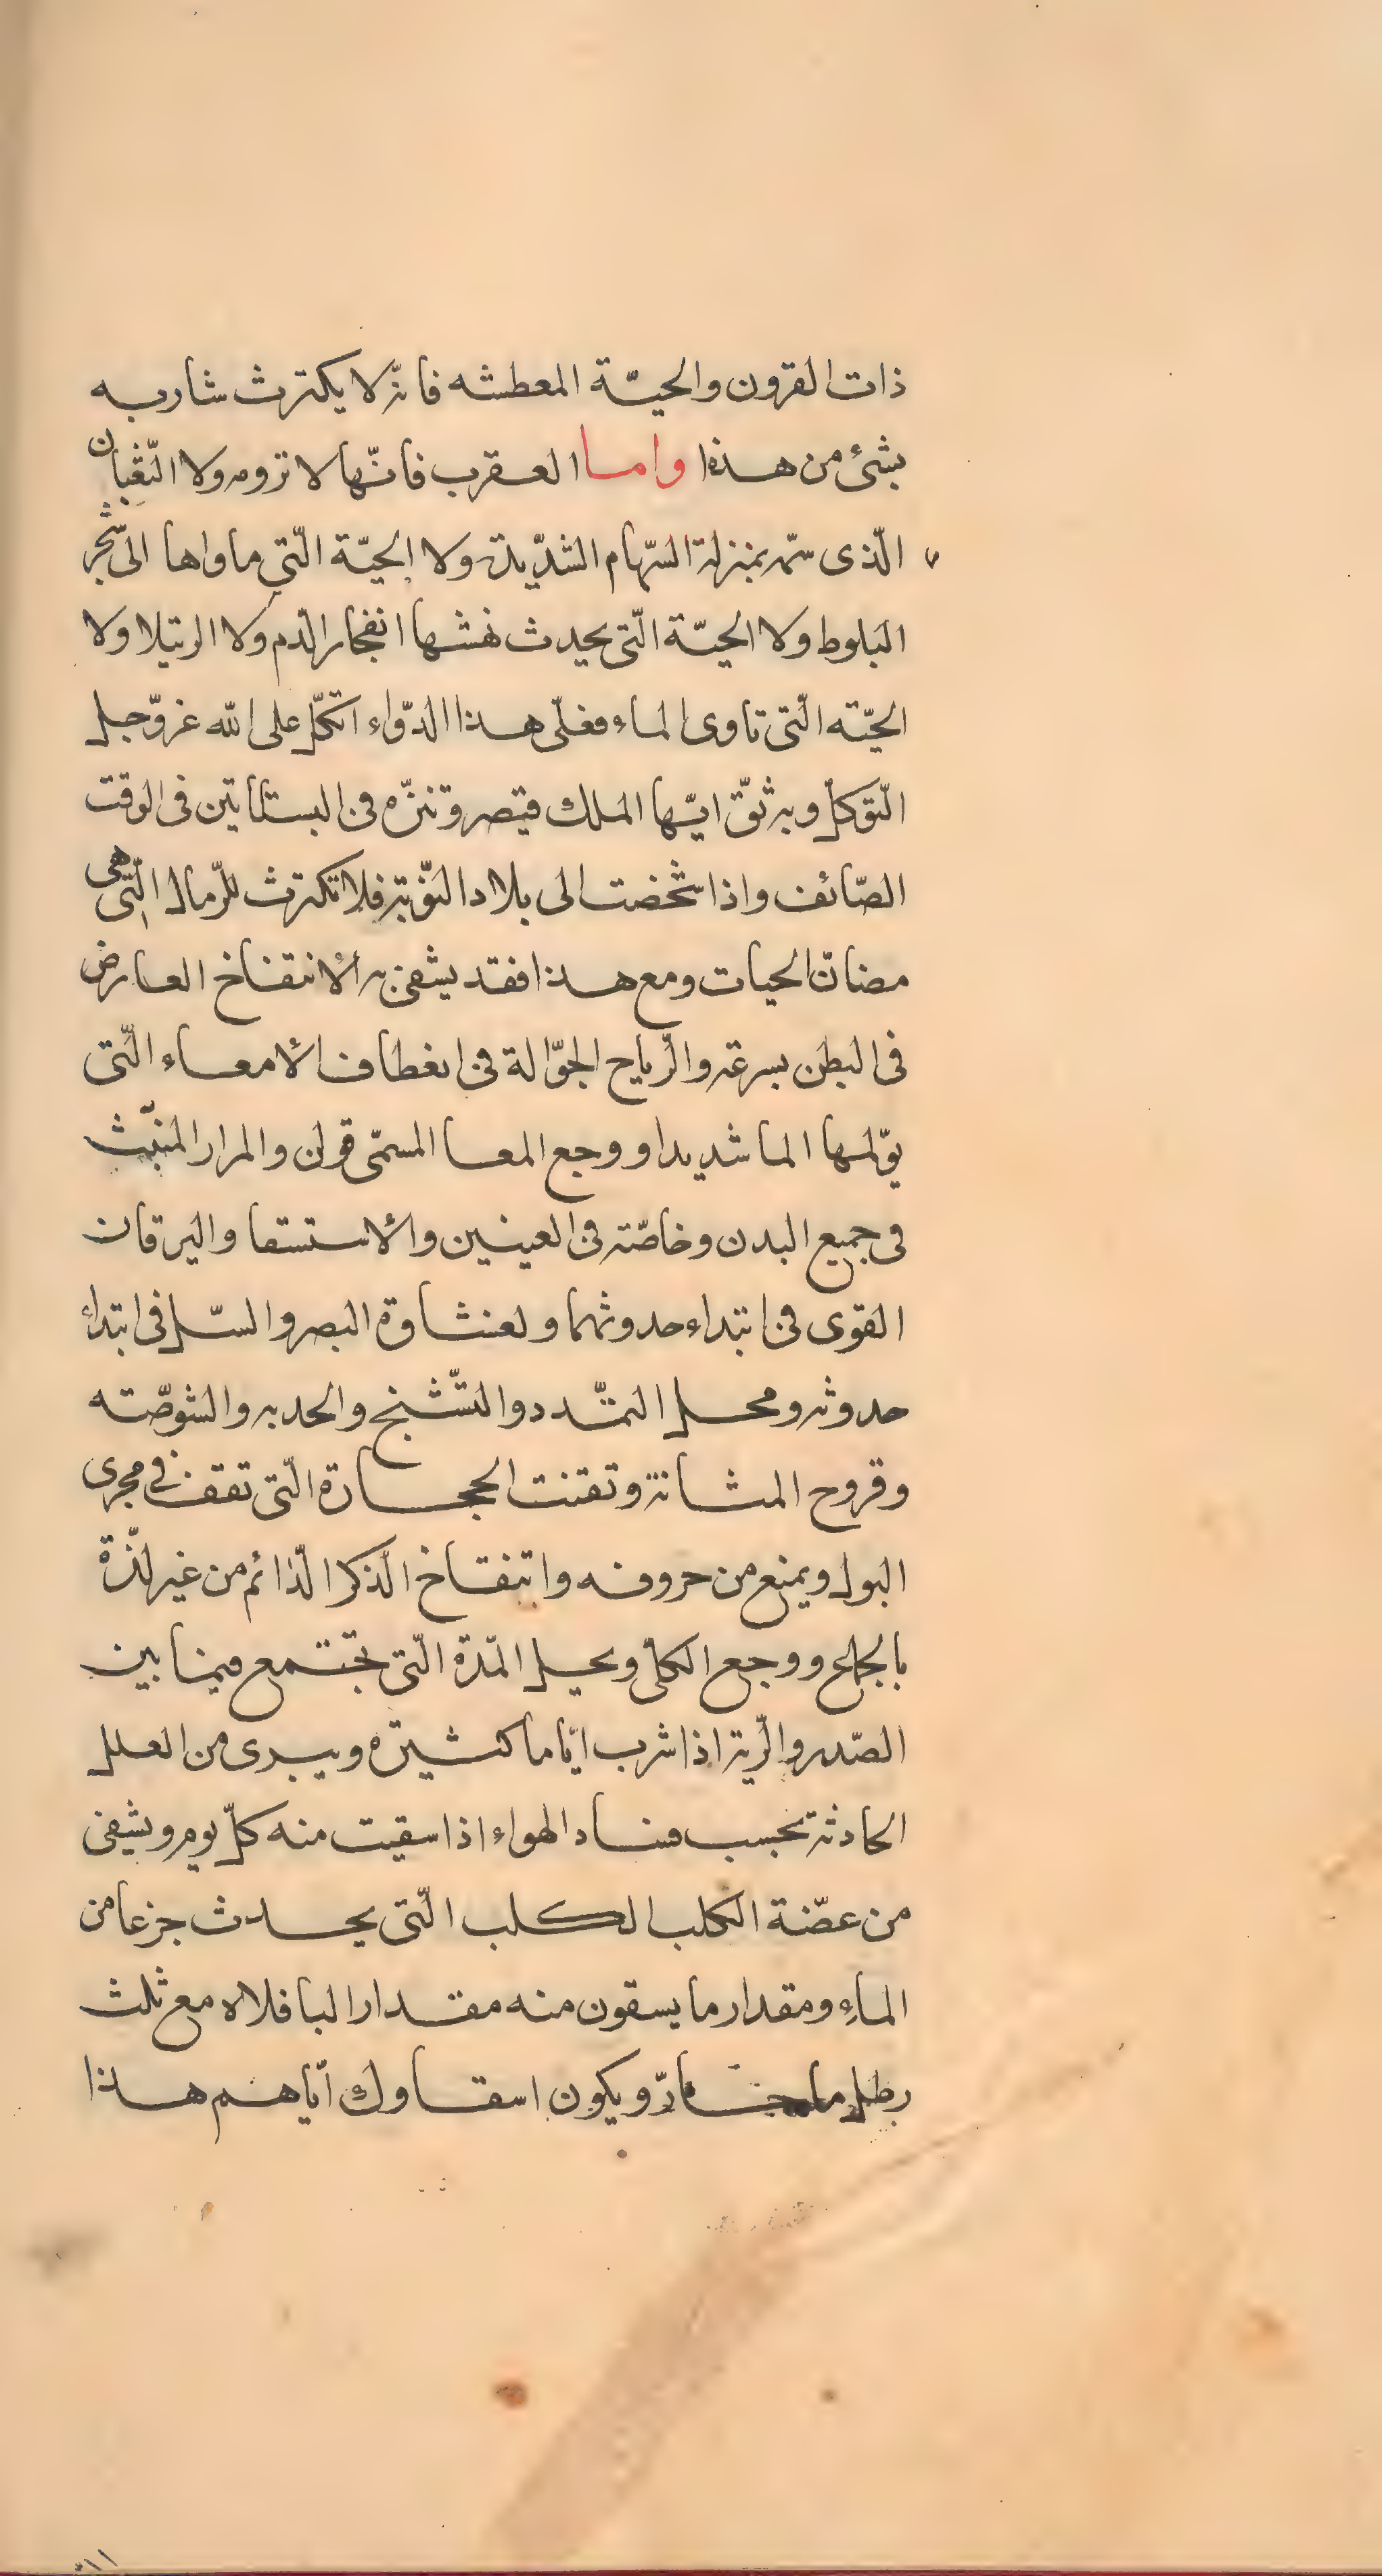 ذات القرون والحيّة المعطشه فانّه لا يكترث شاربه
بشئ من هذه واما العقرب فانّها لا ترومه ولا الثّعبان
الّذى سمّه بمنزلة السّهام الشّديدة ولا الحيّة الّتي ماواها الى شجر
البلوط ولا الحيّة الّتى يحدث نهشها انفجار الدّم ولا الرتيلا ولا
الحيّته الّتى تاوى الماء فعلى هذا الدّواء اتّكل على الله عزّوجل
التّوكل وبه ثق ايّها الملك قيصر وتنزّه فى البستاتين فى الوقت
الصّائف واذا شخصت الى بلاد النّوبة فلا تكترث للرّمال الّتى هى
مضانّ الحيات ومع هذا فقد يشفى به الانتفاخ العارض
فى البطن بسرعة والرّياح الجوّالة فى انعطاف الأمعاء الّتى
يؤلمها الما شديدا ووجع المعا المسمّى قولن والمرار المنبّث
فى جميع البدن وخاصّة فى العينين والأستسقا واليرقان
القوى فى ابتداء حدوثهما ولغشاوة البصر والسّل فى ابتداء
حدوثه ومحل التمدّد والتّشنج والحدبه والشوصّته
وقروح المثانة وتفتت الحجارة الّتى تقف في مجرى
البول ويمنع من حروفه وانتفاخ الذّكر الدّائم من غير لذّة
بالجماع ووجع الكلى ويحل المدّة الّتى تجتمع فيما بين
الصّدر والرّية اذا شرب ايّاما كثيرة ويبرى من العلل
الحادثة بحسب فساد الهواء اذا سقيت منه كلّ يوم ويشفى
من عضّة الكلب الكلب الّتى يحدث جزعا من
الماء ومقدار ما يسقون منه مقدار الباقلاه مع ثلث
رطل ويكون اسقاوك ايّاهم هذا